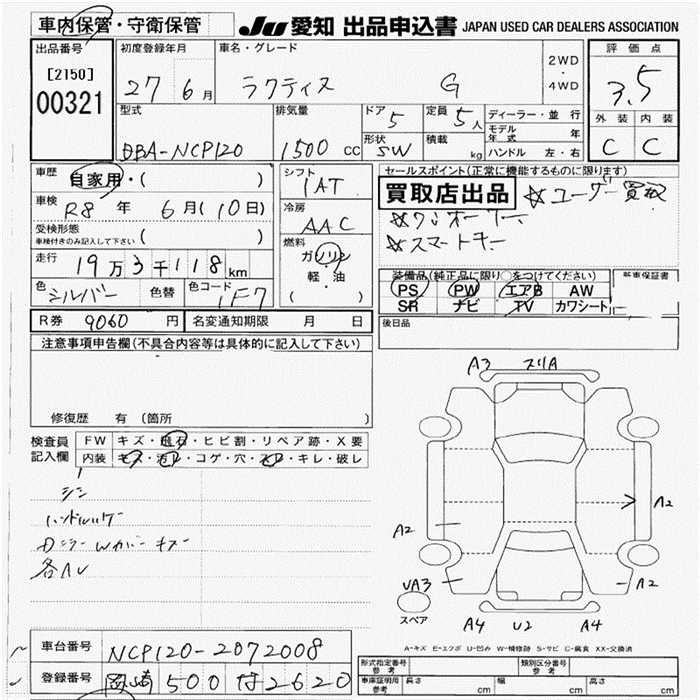 車内保管・守衛保管
JU 愛知 出品申込書 JAPAN USED CAR DEALERS ASSOCIATION
出品番号
[2150]
00321
初度登録年月
27 6月
車名・グレード
ラクティス G
2WD
・
4WD
評価点
3.5
外装 内装
C C
型式
DBA-NCP120
排気量
1500 cc
ドア 5
形状 SW
定員 5人
積載 kg
ディーラー・並行
モデル年式 年
ハンドル 左・右
車歴
自家用・( )
車検
R8 年 6月(10日)
受検形態
車検付きのみ記入して下さい ( )
走行
19万3千118km
色 シルバー 色替 色コード 1F7
シフト
IAT
冷房
AAC
燃料
ガソリン
・
軽・油
( )
セールスポイント(正常に機能するものに限ります)
買取店出品 ☆ユーザー買取
☆ワンオーナー
☆スマートキー
装備品(純正品に限り○をつけてください)
PS PW エアB AW
SR ナビ TV カワシート
新車保証書
後日品
R券 9060 円 名変通知期限 月 日
注意事項申告欄(不具合内容等は具体的に記入して下さい)
修復歴 有(箇所
検査員記入欄
FW キズ・飛石・ヒビ割・リペア跡・X要
内装 キズ・汚レ・コゲ・穴・スレ・キレ・破レ
シン
ハンドルハゲ
DミラーWカバーキズ
各AU
A3 スリA
A2
A2
UA3
A2
スペア
A4 U2 A4
A-キズ E-エクボ U-凹み W-補修跡 S-サビ C-腐食 XX-交換済
車台番号 NCP120-2072008
登録番号 岡崎 500 な 2620
形式指定番号 参考
類別区分番号 参考
車庫証明用 参考 長さ cm 幅 cm 高さ cm